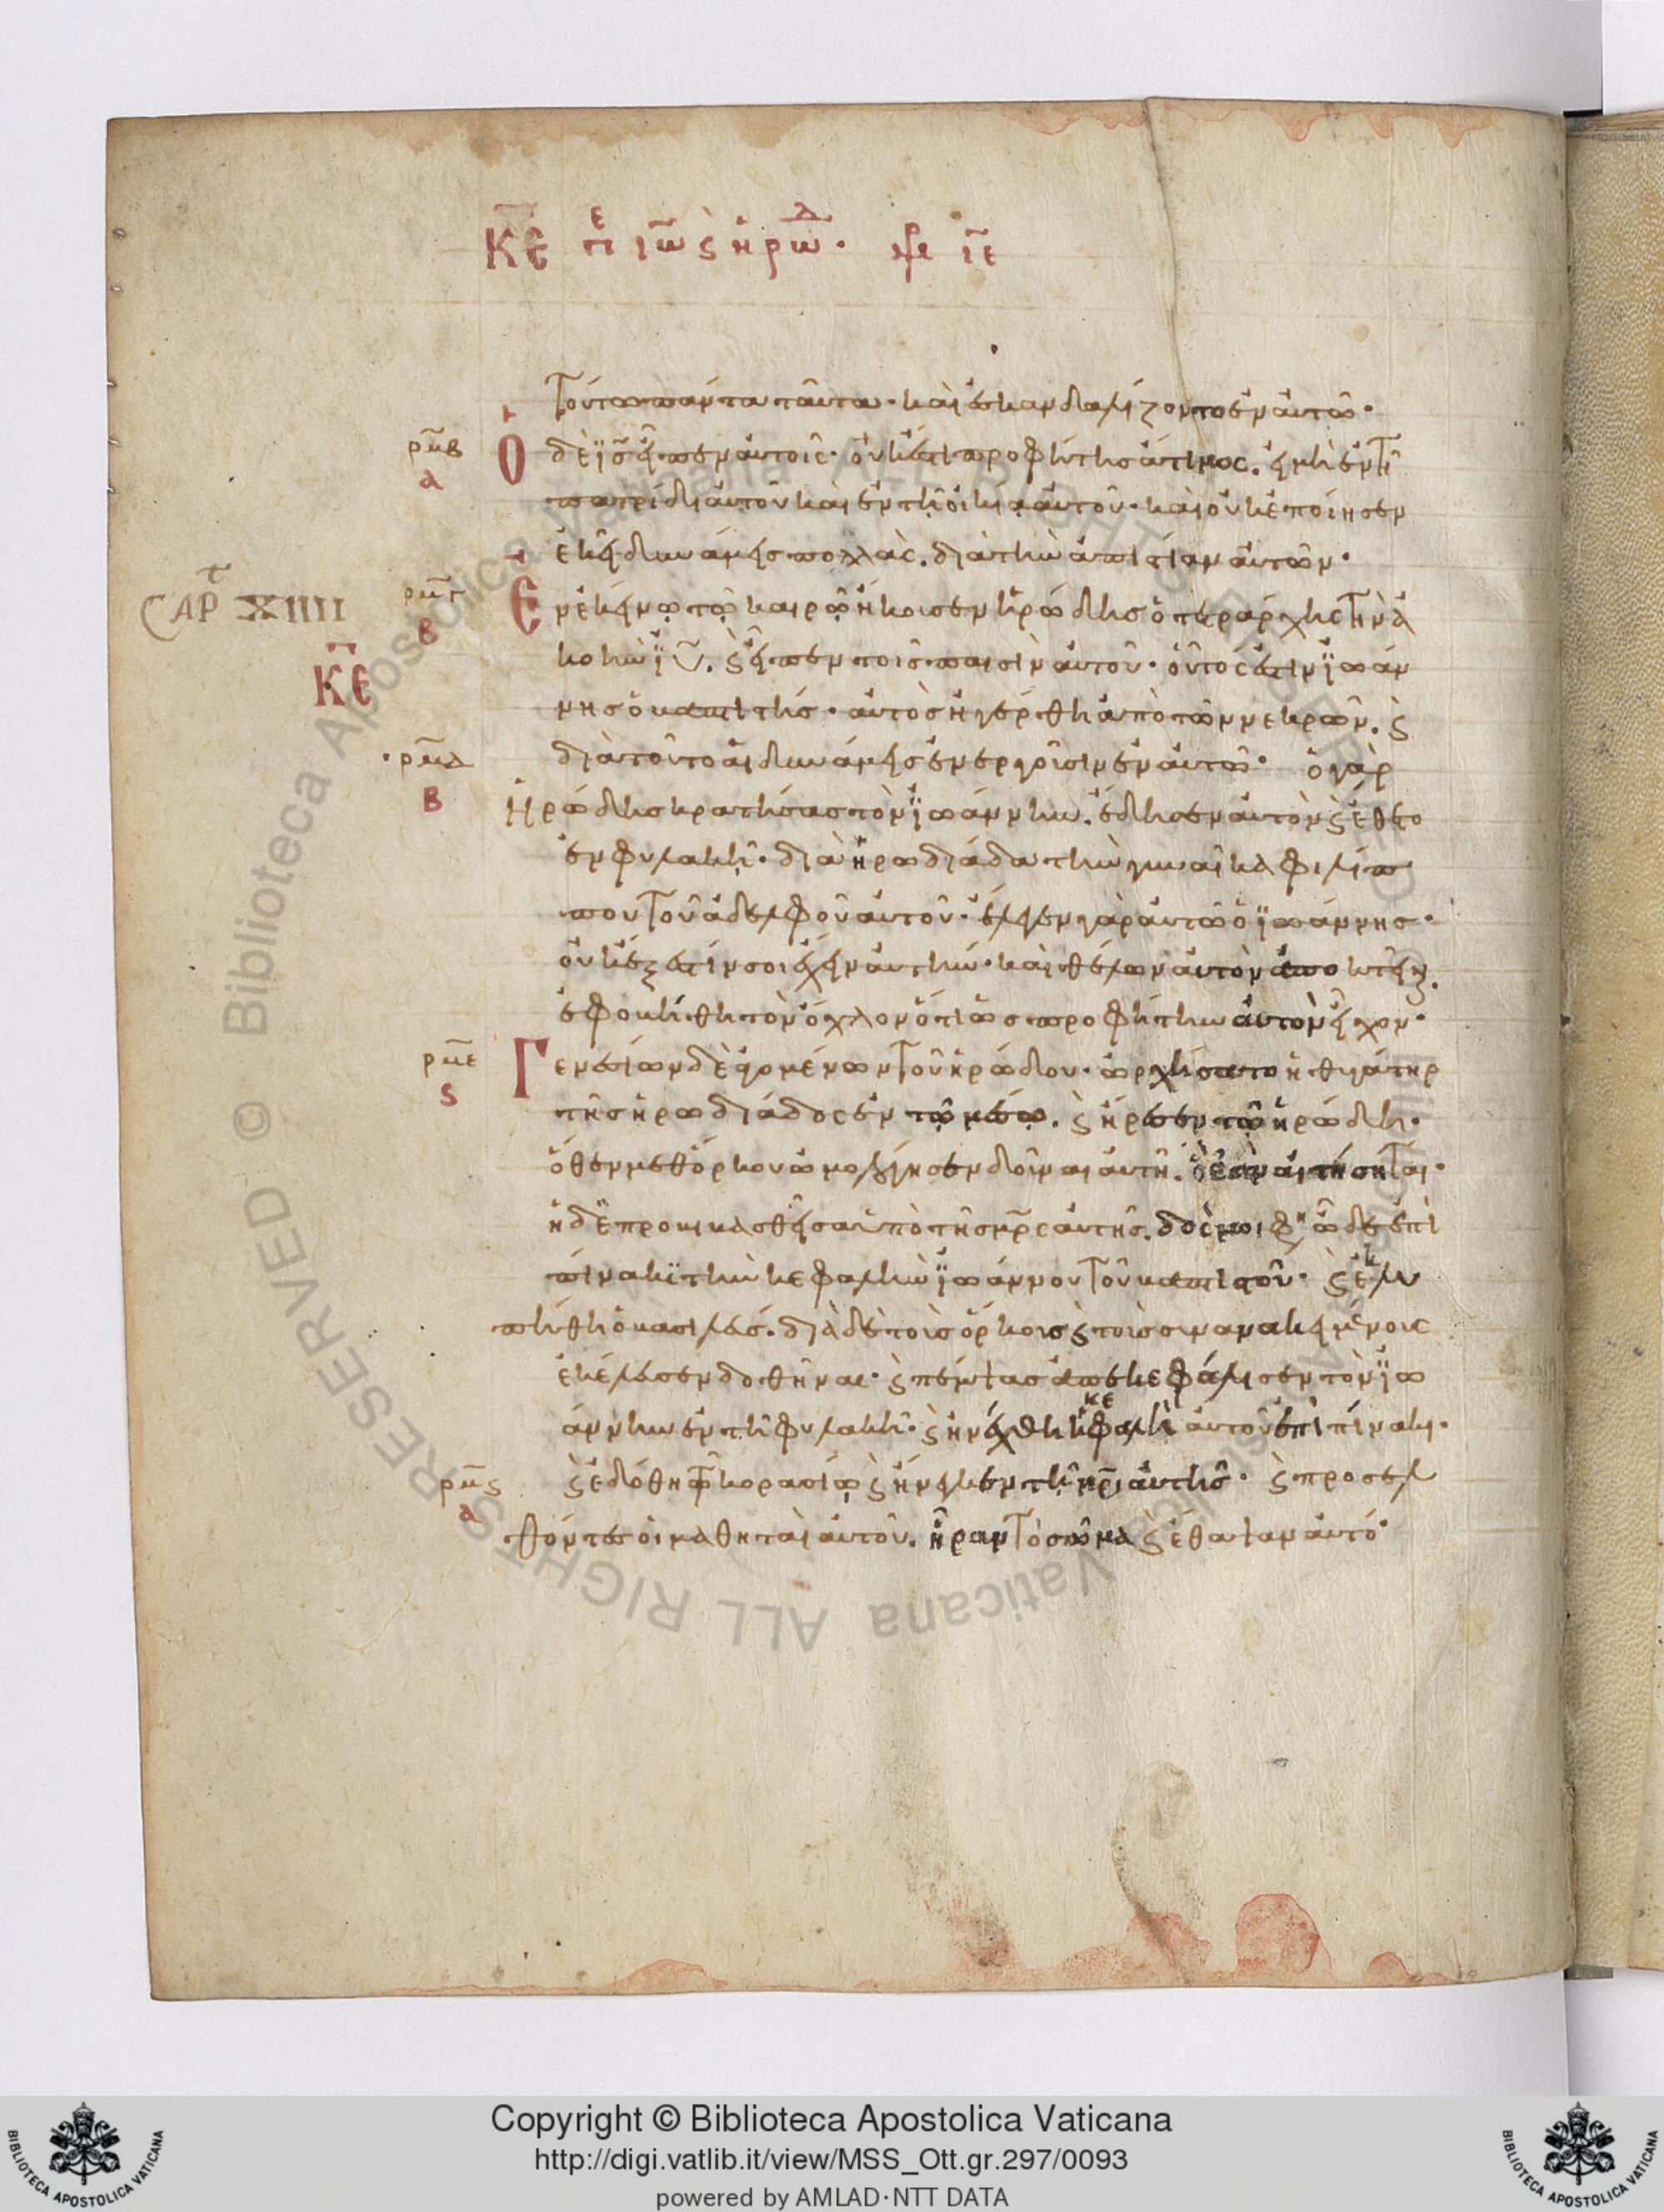 ΚΕ πε ιω ϛ ηρωδ. ιε
τούτω πάντα ταῦτα· καὶ ἐσκανδαλίζοντο ἐν αὐτῶ·
ρμβ
α
Ὁ δὲ ἰς εἶπεν αὐτοῖς· οὐκ ἔστι προφήτης ἄτιμος. εἰ μὴ ἐν τῆ
πατρίδι αὐτοῦ καὶ ἐν τῆ οἰκίᾳ αὐτοῦ· καὶ οὐκ ἐποίησεν
ἐκεῖ δυνάμεις πολλὰς. διὰ τὴν ἀπιστίαν αὐτῶν·
CAP XIIII
ρμγ
β
ΚΕ
Ἐν ἐκείνῳ τῷ καιρῷ ἤκουσεν ἡρώδης ὁ τετράρχης τὴν ἀ
κοὴν ἰυ. ϛ εἶπεν τοῖς παισὶν αὐτοῦ· οὗτός ἐστιν ἰωάν
νης ὁ βαπτιστής· αὐτὸς ἠγέρθη ἀπὸ τῶν νεκρῶν. ϛ
ρμδ
β
διὰ τοῦτο αἱ δυνάμεις ἐνεργοῦσιν ἐν αὐτῶ· ὁ γὰρ
Ἡρώδης κρατήσας τὸν ἰωάννην. ἔδησεν αὐτὸν ϛ ἔθετο
ἐν φυλακῆ· διὰ ἡρωδιάδα τὴν γυναῖκα φιλίπ
που τοῦ ἀδελφοῦ αὐτοῦ· ἔλεγεν γὰρ αὐτῶ ὁ ἰωάννης·
οὐκ ἔξεστίν σοι ἔχειν αὐτήν· καὶ θέλων αὐτὸν ἀποκτεῖναι
ἐφοβήθη τὸν ὄχλον ὅτι ὡς προφήτην αὐτὸν εἶχον·
ρμε
ϛ
Γενεσίων δὲ ἀγομένων τοῦ ἡρώδου· ὠρχήσατο ἡ θυγάτηρ
τῆς ἡρωδιάδος ἐν τῷ μέσῳ. ϛ ἤρεσεν τῷ ἡρώδη·
ὅθεν μεθ ὅρκου ὡμολόγησεν δοῦναι αὐτῆ. ὃ ἐὰν αἰτήσηται·
ἡ δὲ προβιβασθεῖσα ὑπὸ τῆς μρς αὐτῆς. δός μοι φη ὧδε ἐπὶ
πίνακι τὴν κεφαλὴν ἰωάννου τοῦ βαπτιστοῦ· ϛ ἐλυ
πήθη ὁ βασιλεύς. διὰ δὲ τοὺς ὅρκους ϛ τοὺς συνανακειμένους
ἐκέλευσεν δοθῆναι· ϛ πέμψας ἀπεκεφάλισεν τὸν ἰω
άννην ἐν τῆ φυλακῆ· ϛ ἠνέχθη ἡ κεφαλὴ αὐτοῦ ἐπὶ πίνακι·
ρμϛ
α
ϛ ἐδόθη τῶ κορασίῳ ϛ ἤνεγκεν τῆ μρι αὐτῆς· ϛ προσελ
θόντες οἱ μαθηταὶ αὐτοῦ. ἦραν τὸ σῶμα ϛ ἔθαψαν αὐτό·
© Biblioteca Apostolica Vaticana ALL RIGHTS RESERVED
Copyright © Biblioteca Apostolica Vaticana
http://digi.vatlib.it/view/MSS_Ott.gr.297/0093
powered by AMLAD·NTT DATA
BIBLIOTECA APOSTOLICA VATICANA
BIBLIOTECA APOSTOLICA VATICANA